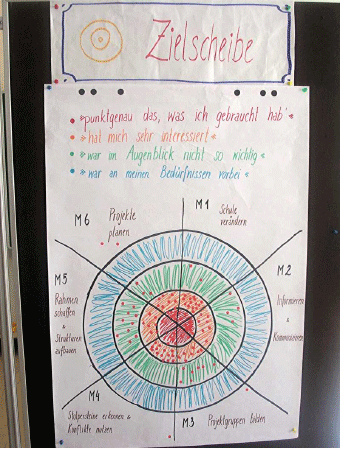 Zielscheibe
"punktgenau das, was ich gebraucht hab'"
"hat mich sehr interessiert"
"war im Augenblick nicht so wichtig"
"war an meinen Bedürfnissen vorbei"
M1
Schule
verändern
M2
Informieren
&
Kommunizieren
M3
Projektgruppen bilden
M4
Stolpersteine erkennen &
Konflikte nutzen
M5
Rahmen
schaffen
&
Strukturen
aufbauen
M6
Projekte
planen